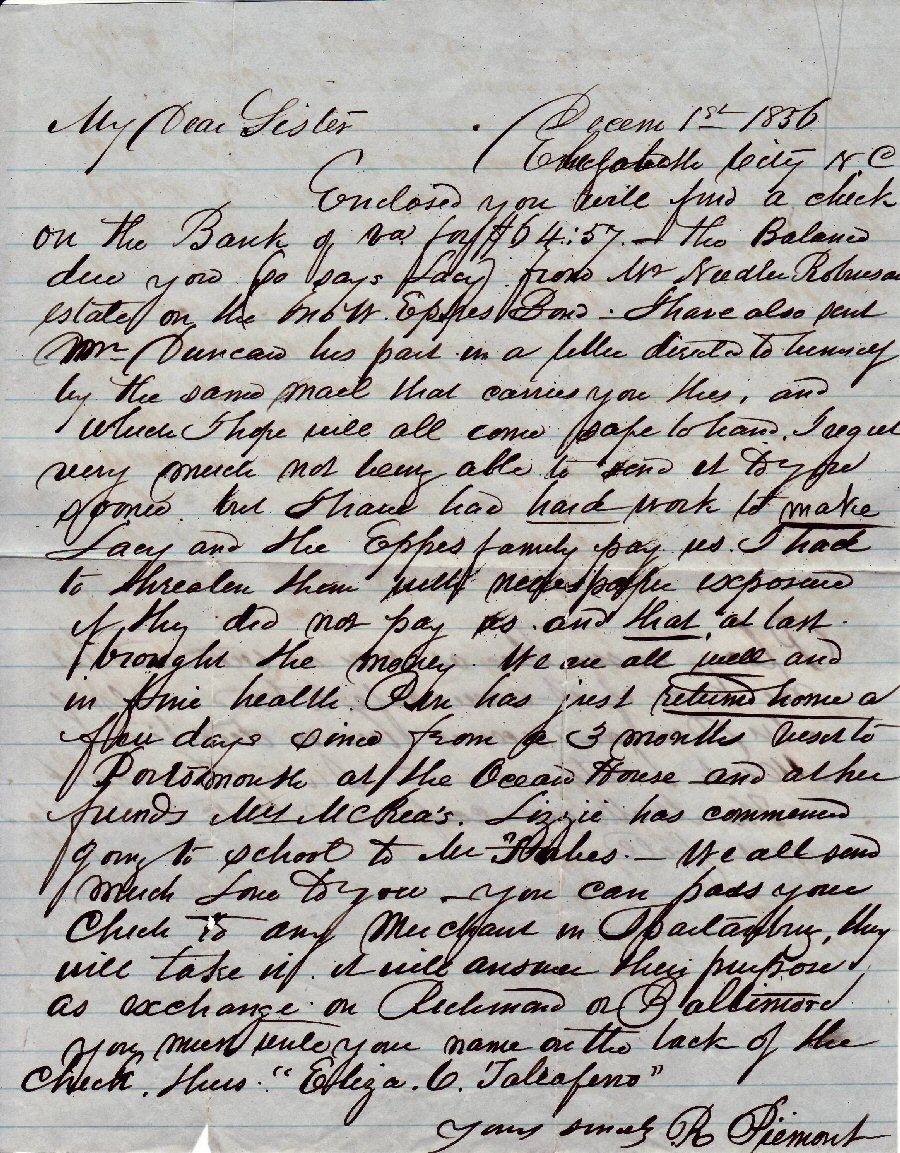 My Dear Sister . Decem 1st 1856
Elizabeth City N.C
Enclosed you will find a check
on the Bank of Va for $64:57 — the Balance
due you (so says Lacy) from Mr Needler Robinson
estate on the Eppes Bond . I have also sent
Mr Duncan his part in a letter directed to himself
by the same mail that carries you this, and
which I hope will all come safe to hand. I regret
very much not being able to send it to you
sooner but I have had hard work to make
Lacy and the Eppes family pay us. I had
to threaten them with newspaper exposure
if they did not pay us and that, at last
brought the money. We are all well and
in fine health. has just returnd home a
few days since from a 3 months visit to
Portsmouth at the Ocean House and at her
friends McRea's. Lizzie has commenced
going to school to Mr — We all send
much Love to you — you can pass your
Check to any Merchant in Spartanburg, they
will take it. it will answer their purpose
as exchange on Richmond or Baltimore
you must write your name on the back of the
Check. thus. "Eliza. C. Taliaferro"
Yours R Piemont